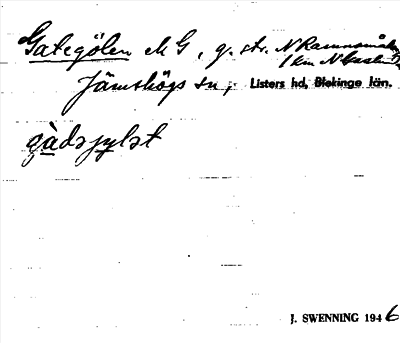 Gategölen M G, g. str. N Ramnamåla
1 km N
Jämshögs sn, Listers hd, Blekinge län.
gàdsjylət
J. SWENNING 1946